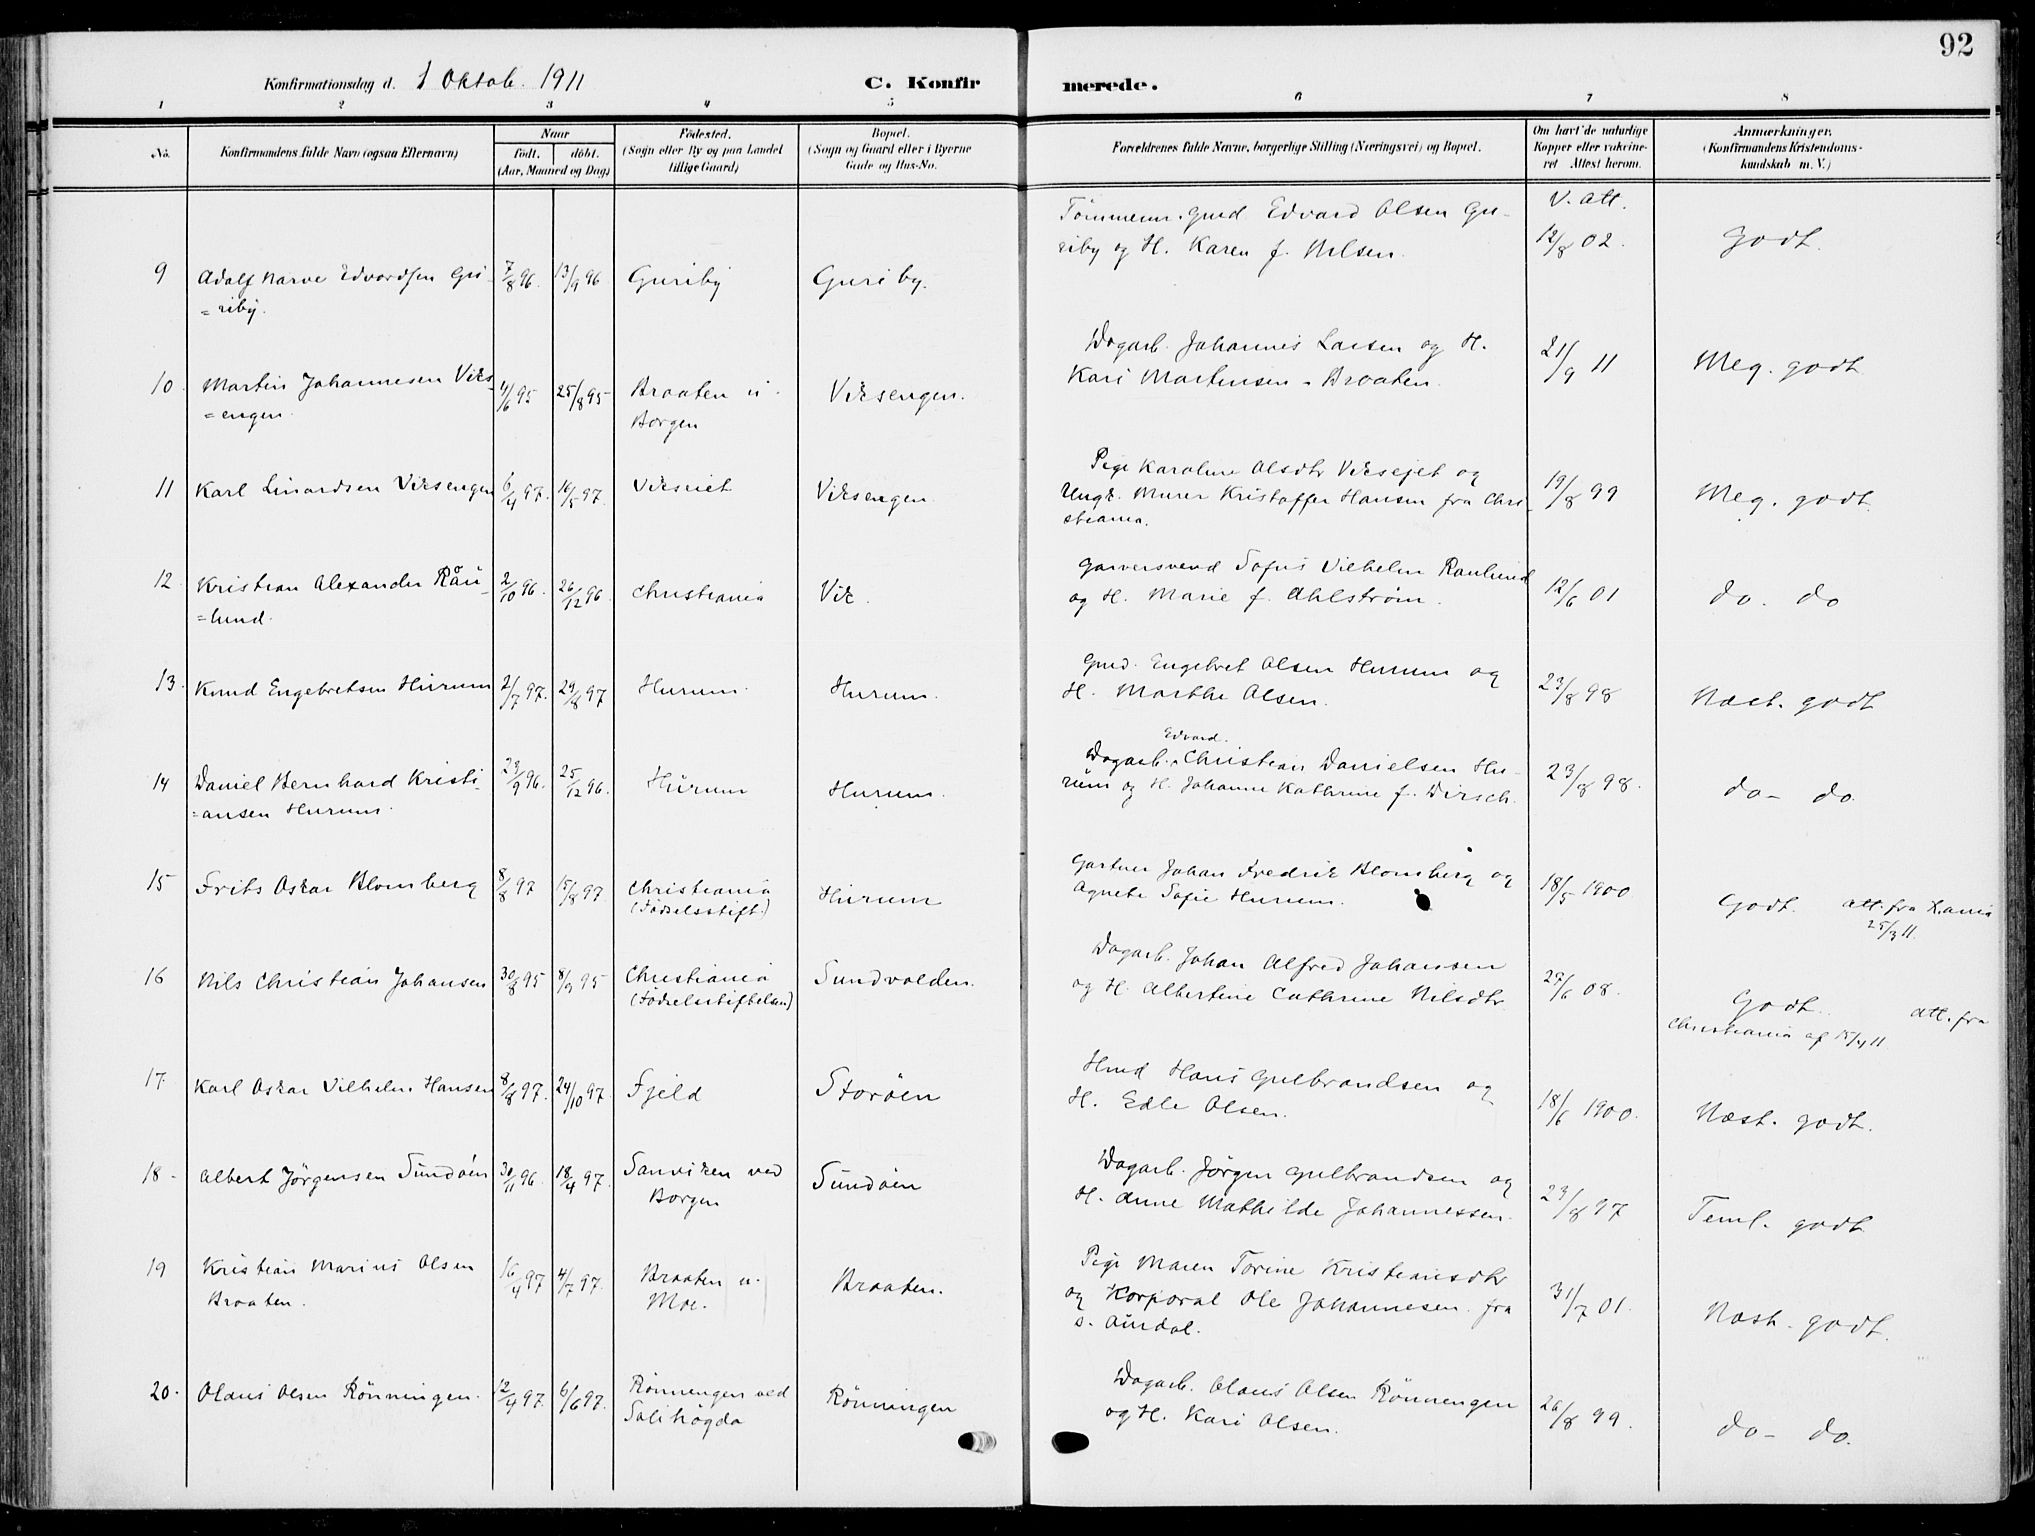 92
Konfirmationsdag d. 1 Oktob. 1911
C. Konfirmerede.
1 2 3 4 5 6 7 8
No.
Konfirmandens fulde Navn (ogsaa Efternavn)
Naar
født. døbt.
(Aar, Maaned og Dag)
Födested.
(Sogn eller By og paa Landet
tillige Gaard)
Bopæl.
(Sogn og Gaard eller i Byerne
Gade og Hus-No.
Forældrenes fulde Navne, borgerlige Stilling (Næringsvei) og Bopæl.
Om havt de naturlige
Kopper eller vakcine-
ret. Attest herom.
Anmærkninger.
(Konfirmandens Kristendoms-
kundskab m. V.)
9 Adolf Narve Edvardsen Gu-
=riby.
7/8 96. 13/9 96 Guriby Guriby.
Tömmerm. Gmd. Edvard Olsen Gu-
riby og H. Karen f. Nilsen.
V. att.
12/8 02. Godt.
10. Martin Johannesen Viks-
=engen.
4/6 95 25/8 95 Braaten u.
Borgen
Viksengen.
Dagarb. Johannes Larsen og H.
Kari Martinsen - Braaten.
21/9 11 Meg. godt
11 Karl Linardsen Viksengen 6/4 97. 16/5 97. Vikseiet Viksengen
Pige Karoline Olsdtr Viksejet og
Ungk. Murer Kristoffer Hansen fra Chri-
stiania.
19/8 99 Meg. godt.
12. Kristian Alexander Rau-
=lund.
2/10 96. 26/12 96. Christiania Vik.
Garversvend Sofus Vilhelm Raulund
og H. Marie f. Ahlström.
12/6 01 do. do
13. Knud Engebretsen Hurum 2/7 97. 29/8 97 Hurum. Hurum.
Gmd. Engebret Olsen Hurum og
H. Marthe Olsen.
23/8 98 Næst. godt
14 Daniel Bernhard Kristi-
=ansen Hurum.
23/9 96. 25/12 96. Hurum Hurum.
Edvard.
Dagarb. Christian Danielsen Hu-
rum og H. Johanne Kathrine f. Dirsch.
23/8 98. do - do.
15 Frits Oskar Blomberg 8/8 97 15/8 97. Christiania
(Födselsstift.)
Hurum
Gartner Johan Fredrik Blomberg og
Agnete Sofie Hurum.
18/5 1900 Godt. att. fra Kania
25/3 11.
16 Nils Christian Johansen 30/8 95 8/9 95 Christiania
(Födselsstiftelsen)
Sundvolden.
Dagarb. Johan Alfred Johansen
og H. Albertine Cathrine Nilsdtr
27/6 08. Godt. att. fra
Christiania af 15/4 11
17. Karl Oskar Vilhelm Hansen 8/8 97. 24/10 97. Fjeld Storöen
Hmd Hans Gulbrandsen og
H. Edle Olsen.
18/6 1900. Næst. godt.
18 - Albert Jörgensen Sundöen 30/11 96. 18/4 97. Sanviken ved
Borgen
Sundöen
Dagarb. Jörgen Gulbrandsen og
H. Anne Mathilde Johannessen.
23/8 97 Teml. godt
19 Kristian Marius Olsen
Braaten.
16/4 97 4/7 97. Braaten u.
Moe.
Braaten.
Pige Maren Torine Kristiansdtr
og Korporal Ole Johannesen fra
S. Aurdal.
31/7 01. Næst. godt.
20. Olaus Olsen Rönningen. 12/4 97. 6/6 97. Rönnengen ved
Solihögda
Rönningen
Dagarb. Olaus Olsen Rönnengen
og H. Kari Olsen.
26/8 99. do - do.